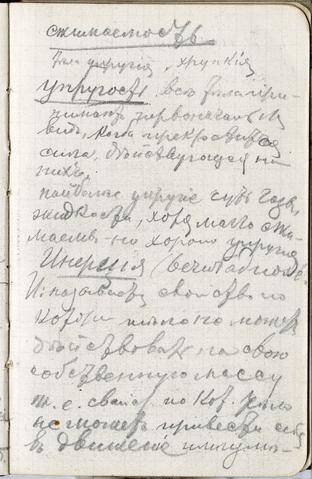 сжимаемость
Тела упругія, хрупкія
Упругость всѣ тела при-
нимать первоначальный
видъ, когда прекратится
сила, дѣйствующая на
нихъ.
наиболее упругіе суть газы,
жидкости, хотя мало сжи-
маемы но хорошо упругія
Инерція
И. называется свойство по
которому тело не может
дѣйствовать на свою
собственную массу
т. е. свойст. по кот. тело
не может привести себя
въ движеніе или